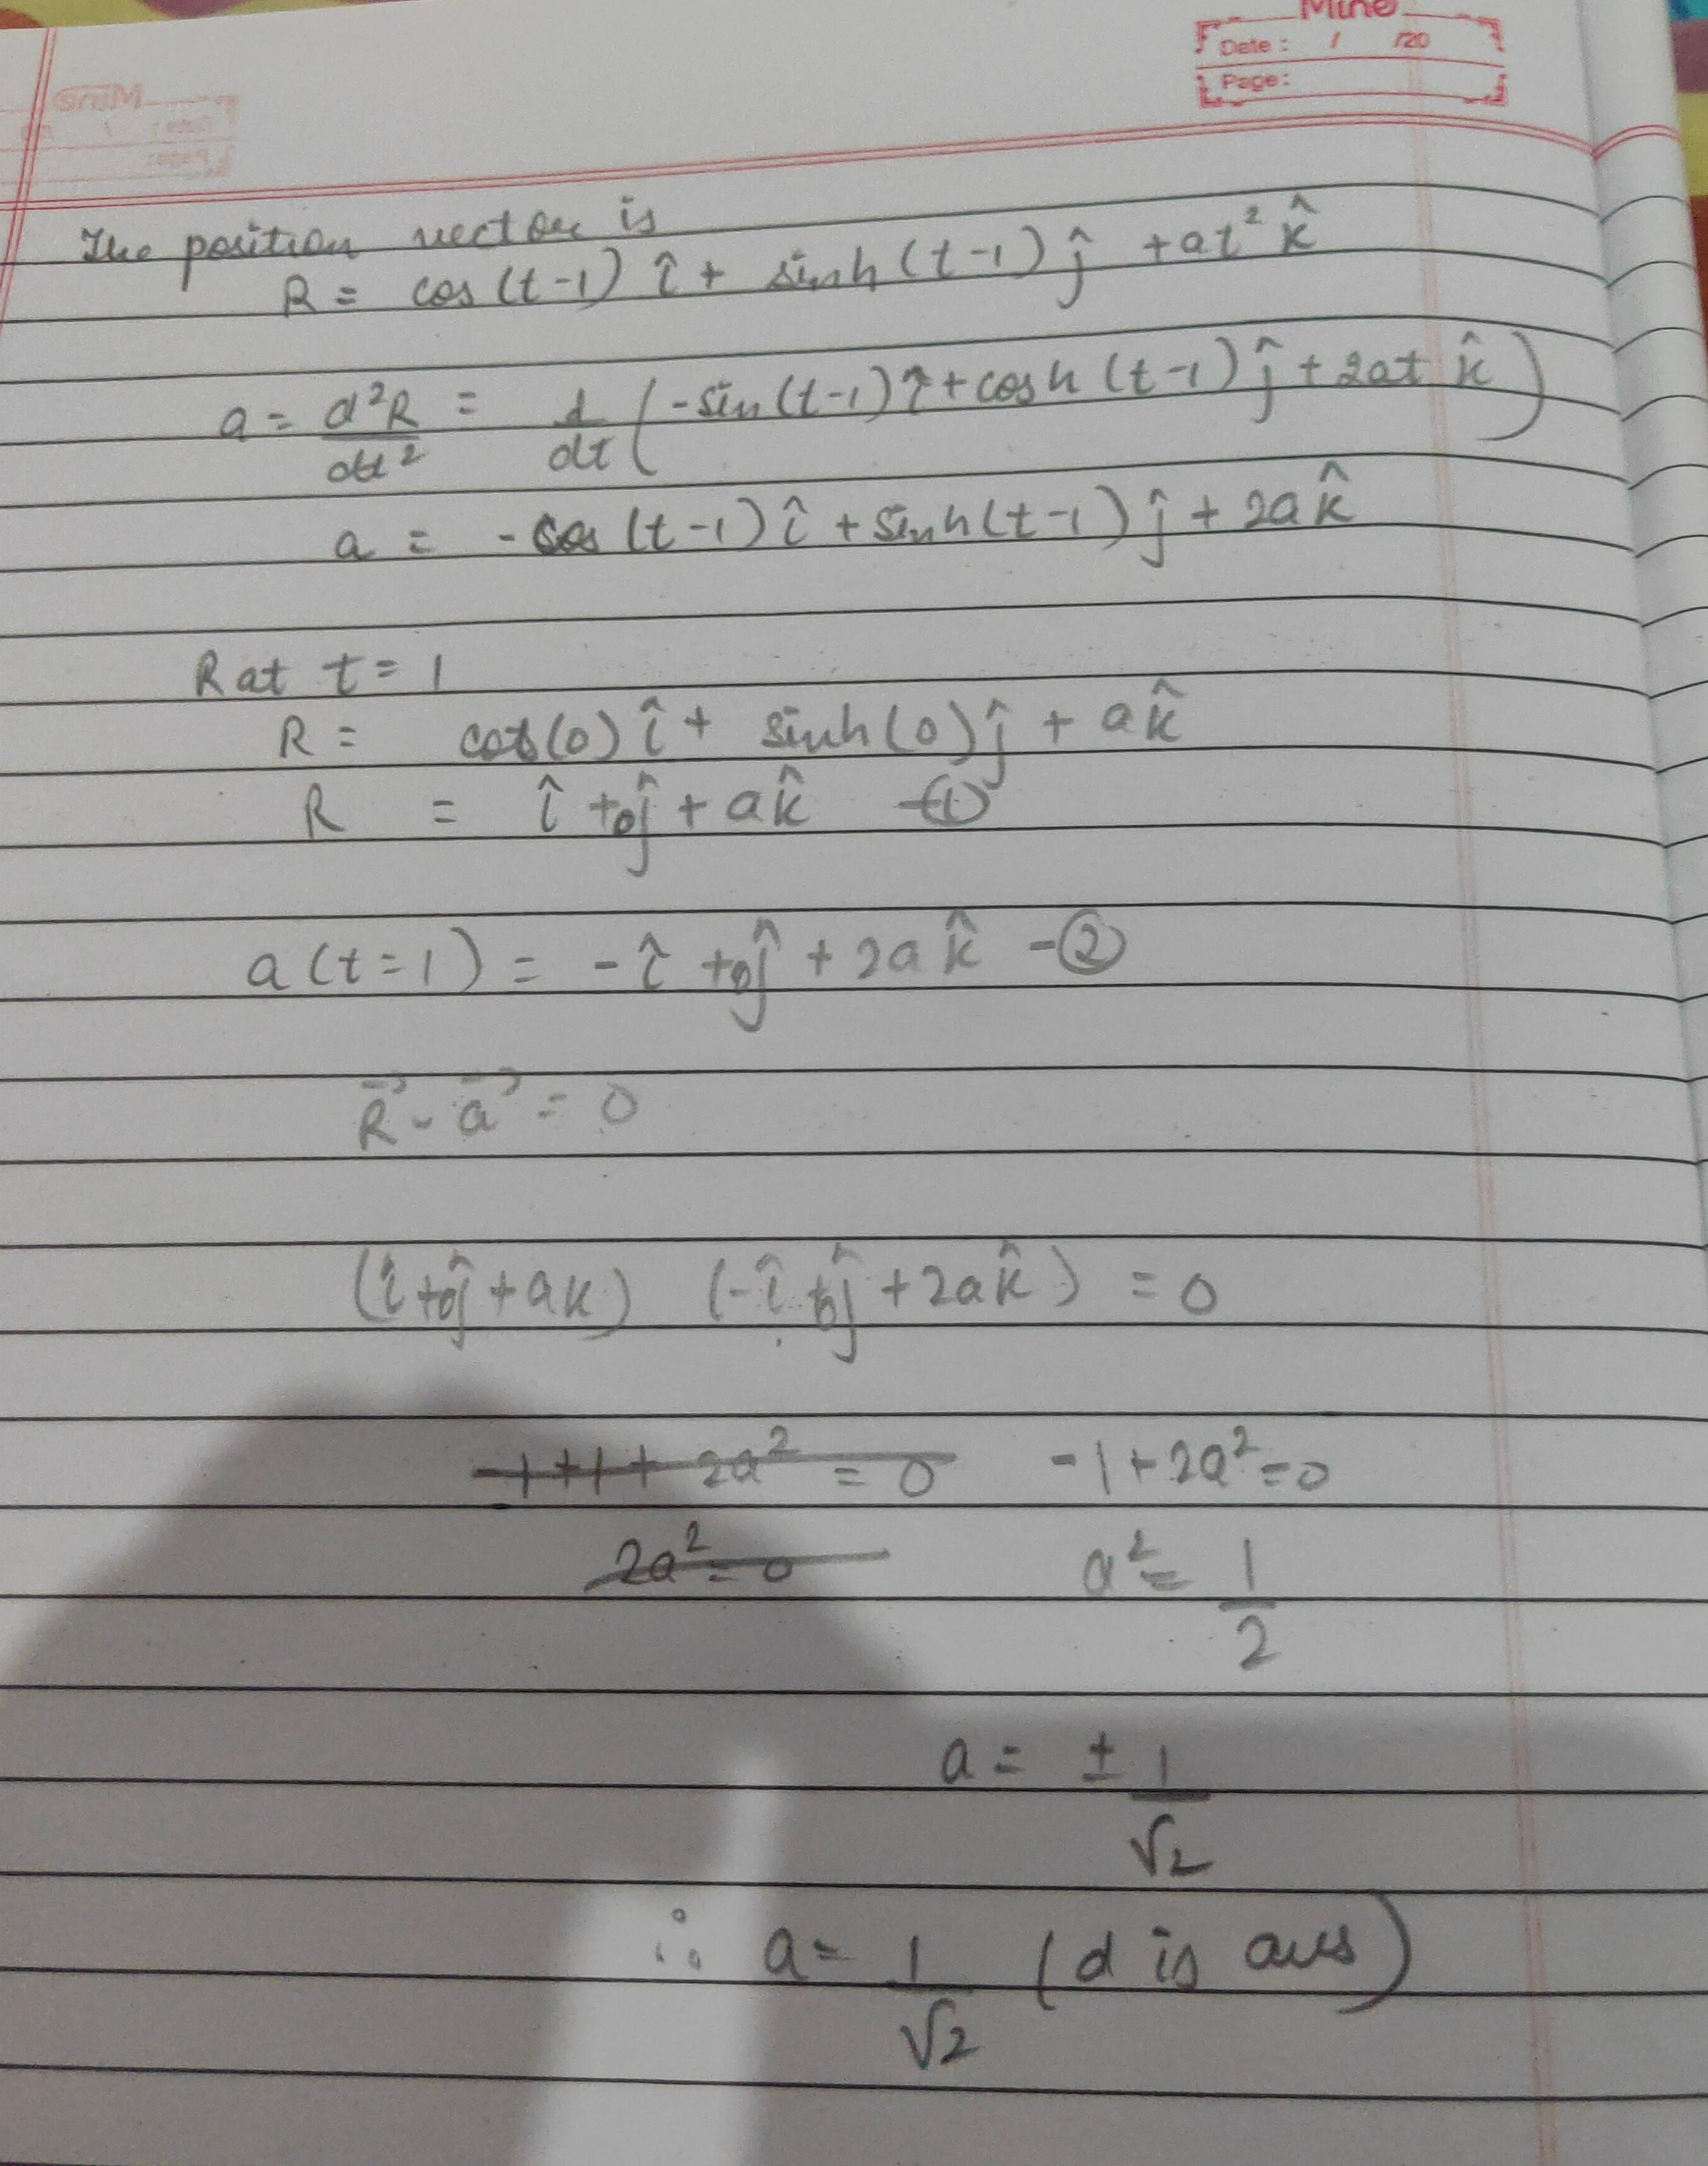 Mine
Date : / /20
Page:
The position vector is
R = cos(t-1) î + sinh(t-1) ĵ + at² k̂
a = d²R/dt² = d/dt (-sin(t-1) î + cosh(t-1) ĵ + 2at k̂)
a = -cos(t-1) î + sinh(t-1) ĵ + 2a k̂
R at t = 1
R = cos(0) î + sinh(0) ĵ + a k̂
R = î + 0ĵ + a k̂ -①
a(t=1) = -î + 0ĵ + 2a k̂ -②
R⃗ · a⃗ = 0
(î + 0ĵ + ak) (-î + 0ĵ + 2a k̂) = 0
-1+1+2a² = 0 -1+2a²=0
2a² = 0 a² = 1/2
a = ± 1/√2
∴ a = 1/√2 (d is ans)